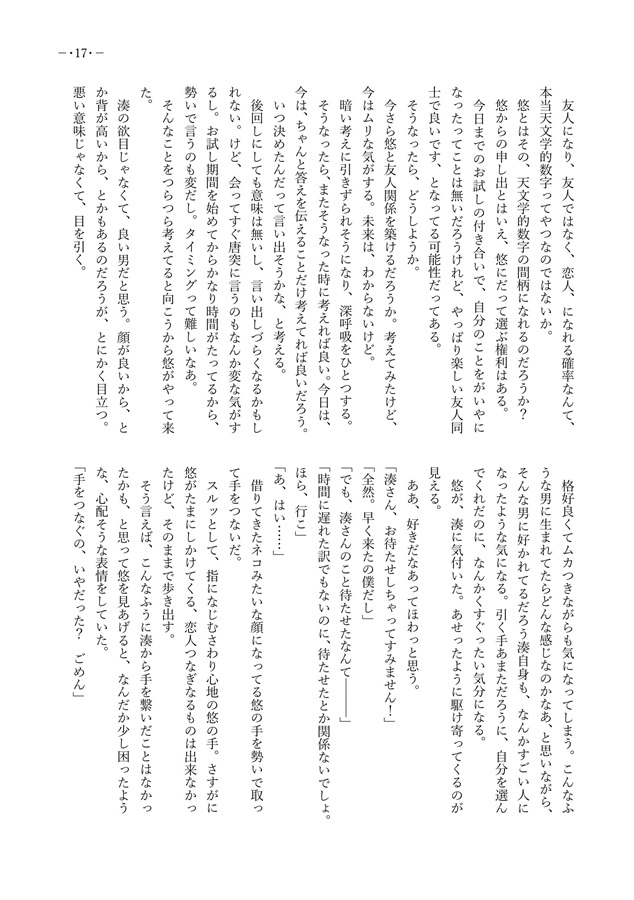 －・17・－
友人になり、友人ではなく、恋人、になれる確率なんて、
本当天文学的数字ってやつなのではないか。
悠とはその、天文学的数字の間柄になれるのだろうか？
悠からの申し出とはいえ、悠にだって選ぶ権利はある。
今日までのお試しの付き合いで、自分のことをがいやに
なったってことは無いだろうけれど、やっぱり楽しい友人同
士で良いです、となってる可能性だってある。
そうなったら、どうしようか。
今さら悠と友人関係を築けるだろうか。考えてみたけど、
今はムリな気がする。未来は、わからないけど。
暗い考えに引きずられそうになり、深呼吸をひとつする。
そうなったら、またそうなった時に考えれば良い。今日は、
今は、ちゃんと答えを伝えることだけ考えてれば良いだろう。
いつ決めたんだって言い出そうかな、と考える。
後回しにしても意味は無いし、言い出しづらくなるかもし
れない。けど、会ってすぐ唐突に言うのもなんか変な気がす
るし。お試し期間を始めてからかなり時間がたってるから、
勢いで言うのも変だし。タイミングって難しいなあ。
そんなことをつらつら考えてると向こうから悠がやって来
た。
湊の欲目じゃなくて、良い男だと思う。顔が良いから、と
か背が高いから、とかもあるのだろうが、とにかく目立つ。
悪い意味じゃなくて、目を引く。
格好良くてムカつきながらも気になってしまう。こんなふ
うな男に生まれてたらどんな感じなのかなあ、と思いながら、
そんな男に好かれてるだろう湊自身も、なんかすごい人に
なったような気になる。引く手あまただろうに、自分を選ん
でくれだのに、なんかくすぐったい気分になる。
悠が、湊に気付いた。あせったように駆け寄ってくるのが
見える。
ああ、好きだなあってほわっと思う。
「湊さん、お待たせしちゃってすみません！」
「全然。早く来たの僕だし」
「でも、湊さんのこと待たせたなんて―――」
「時間に遅れた訳でもないのに、待たせたとか関係ないでしょ。
ほら、行こ」
「あ、はい……」
借りてきたネコみたいな顔になってる悠の手を勢いで取っ
て手をつないだ。
スルッとして、指になじむさわり心地の悠の手。さすがに
悠がたまにしかけてくる、恋人つなぎなるものは出来なかっ
たけど、そのままで歩き出す。
そう言えば、こんなふうに湊から手を繋いだことはなかっ
たかも、と思って悠を見あげると、なんだか少し困ったよう
な、心配そうな表情をしていた。
「手をつなぐの、いやだった？　ごめん」